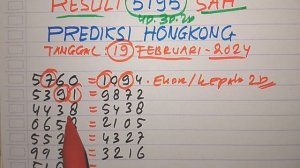 RESULT 5195 SAH
40.30.20
PREDIKSI HONGKONG
TANGGAL 19 FEBRUARI-2024
5760 = 1094. EKOR/KEPALA 2D
5391 = 9872
4438 = 5438
065 = 2105
552 = 4327
99 = 3216